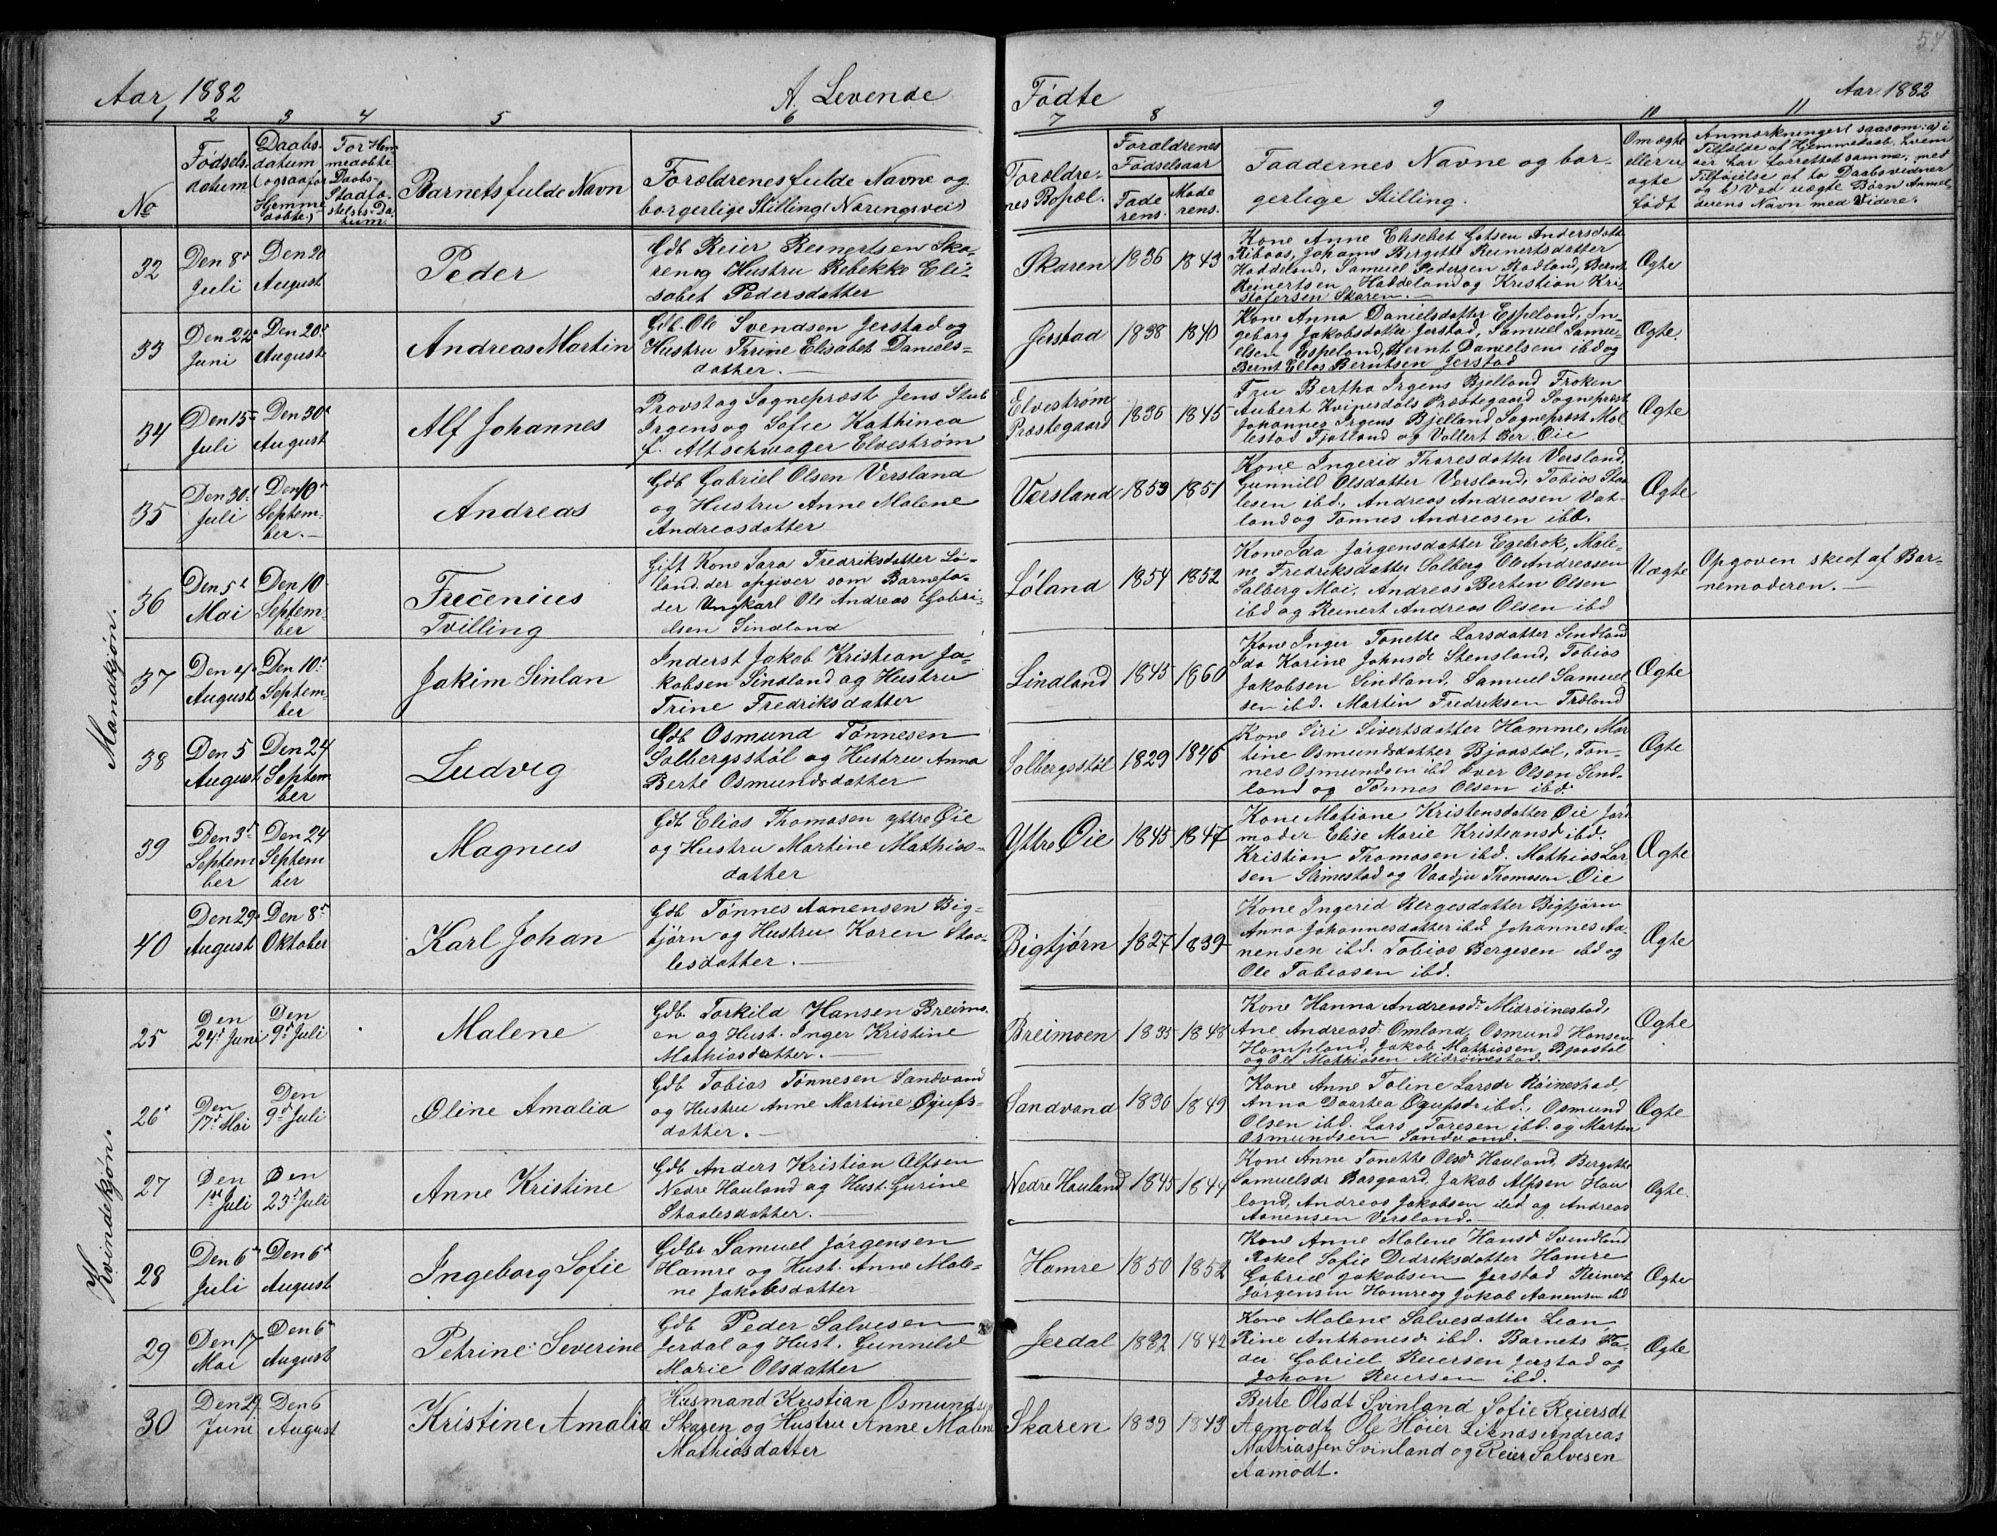 54
Aar 1882
A. Levende
Fødte
Aar 1882
1 2 3 4 5 6 7 8 9 10 11
No
Fødsels
datum
Daabs
datum
(ogsaa for
Hjemme
døbte)
For Hem
medøbte
Daabs-
Stadfæ
stelses-Da
tum
Barnets fulde Navn
Forældrenes fulde Navne og
borgerlige Stilling (Næringsvei)
Foræ­ldre-
nes Bopæl.
Forældrenes
Fødselsaar
Fade
rens.
Mode
rens.
Faddernes Navne og bor-
gerlige Stilling.
Om ægte
eller u
ægte
født
Anmærkninger saasom: a) i
Tilfælde af Hjemmedaab, hvem
der har forrettet samme, med
Tilføielse af to Daabsvidner
og b) Ved uægte Børn Anmel
derens Navn med Videre.
Mandkjøn.
32
Den 8de
Juli
Den 20
August
Peder
Gdb Reier Reinertsen Ska-
ren og Hustru Rebekke Eli-
sabet Pedersdatter
Skaren
1836
1843
Kone Anne Elisebet Gotsen Andersdatt
Riboas, Johanne Bergitte Reinertsdatter
Haddeland, Samuel Pedersen Rødland, Bernt
Reinertsen Haddeland og Kristian Kri-
stofersen Skaren.
Ægte
33
Den 22de
Juni
Den 20de
August
Andreas Martin
Gdb. Ole Svendsen Jerstad og
Hustru Thrine Elisabet Daniels-
datter.
Jerstad
1838
1840
Kone Anna Danielsdatter Espeland, In-
geborg Jakobsdatter Jerstad, Samuel Samu-
elsen Espeland, Bernt Danielsen ibd og
Bernt Elias Berntsen Jerstad
Ægte.
34
Den 15de
Juli
Den 30te
August
Alf Johannes
Provst og Sognepræst Jens Stub
Irgens og Sofie Kathinca
f. Altschwager Elvestrøm
Elvestrøm
Præstegaard
1836
1845
Fru Bertha Irgens Bjelland Frøken
Aubert Kvinesdals Præstegaard Sognepræst
Johannes Irgens Bjelland Sognepræst Mol
lestad Fjotland og Vollert Ber Øie
Ægte
35
Den 30te
Juli
Den 10de
Septem-
ber.
Andreas
Gdb Gabriel Olsen Versland
og Hustru Anne Malene
Andreasdatter
Versland
1853
1851
Kone Ingerid Thoresdatter Versland,
Gunnild Olsdatter Versland, Tobias Staa
lesen ibd, Andreas Andreasen Vat-
land og Tønnes Andreasen ibd.
Ægte
36
Den 5te
Mai
Den 10
Septem-
ber
Fredenius
Tvilling
Gift Kone Sara Fredriksdatter Lø-
land, der opgiver som Barnefa-
der Ungkarl Ole Andreas Gabri-
elsen Sindland
Løland
1854
1852
Kone Ida Jørgensdatter Egebrok, Male-
ne Fredriksdatter Solberg Ole Andreasen
Solberg Moi, Andreas Berten Olsen
ibd og Reinert Andreas Olsen ibd
Uægte
Opgaven skeet af Bar-
nemoderen.
37
Den 4de
August
Den 10de
Septem-
ber
Jakim Sinlan
Inderst Jakob Kristian Ja-
kobsen Sindland og Hustru
Trine Fredriksdatter
Sindland
1845
1860
Kone Inger Tonette Larsdatter Sindland
Ida Karine Johnsdr Stensland, Tobias
Jakobsen Sindland, Samuel Samuel
sen ibd. Martin Fredriksen Træland
Ægte
38
Den 5
August
Den 24
Septem
ber
Ludvig
Gdb Osmund Tønnesen
Solbergsstøl og Hustru Anna
Berte Osmundsdatter
Solbergsstøl
1829
1846
Kone Siri Sivertsdatter Hamme, Mar
tine Osmundsdatter Bjaastøl, Tøn-
nes Osmundsen ibd Iver Olsen Sind-
land og Tønnes Olsen ibd.
Ægte
39
Den 3de
Septem
ber
Den 24
Septem
ber
Magnus
Gdb Elias Thomasen Yttre Øie
og Hustru Martine Mathias-
datter
Yttre Øie
1845
1847
Kone Matiane Kristensdatter Øie Jor
moder Elise Marie Kristiansd ibd.
Kristian Thomasen ibd. Mathias Lar
sen Slimestad og Vaadju Thomasen Øie
Ægte
40
Den 29
August
Den 8de
Oktober
Karl Johan
Gdb Tønnes Aanensen Big-
tjørn og Hustru Karen Staa-
lesdatter.
Bigtjørn
1827
1839
Kone Ingerid Bergesdatter Bigtjørn
Anna Johannesdatter ibd Johannes Aa-
nensen ibd. Tobias Bergesen ibd og
Ole Tobiasen ibd.
Ægte
Kvindekjøn.
25
Den
24de Juni
Den
9de Juli
Malene
Gdb Torkild Hansen Breimo-
en og Hust. Inger Kristine
Mathiasdatter.
Breimoen
1835
1848
Kone Hanna Andreasdr Midrøinestad,
Ane Andreasdr Omland, Osmund Hansen
Hompland, Jakob Mathiasen Bjaastøl
og Ole Mathiasen Midrøinestad.
Ægte
26
Den
17de Mai
Den
9de Juli
Oline Amalia
Gdb Tobias Tønnesen Sandvand
og Hustru Anne Martine Øgufs-
datter.
Sandvand
1830
1849
Kone Anne Toline Larsdr Røinestad,
Anna Daartea Øgufsdr ibd., Osmund
Olsen ibd. Lars Toresen ibd og Marten
Osmundsen Sandvand.
Ægte
27
Den
1ste Juli
Den
23de Juli
Anne Kristine
Gdb Anders Kristian Alfsen
Nedre Hauland og Hust. Gurine
Staalesdatter.
Nedre Hauland
1845
1844
Kone Anne Tonette Olsd Hauland, Bergitte
Samuelsdr Borgaard, Jakob Alfsen Hau
land, Andreas Jakobsen ibd og Andreas
Aanensen Versland.
Ægte.
28
Den 6te
Juli
Den 6te
August
Ingeborg Sofie
Gdbr Samuel Jørgensen
Hamre og Hust. Anne Male-
ne Jakobsdatter
Hamre
1850
1852
Kone Anne Malene Hansd Svindland
Rakel Sofie Didriksdatter Hamre
Gabriel Jakobsen Jerstad Reinert
Jørgensen Hamre og Jakob Aanensen ibd
Ægte
29
Den 17
Mai
Den 6te
August
Petrine Severine
Gdb Peder Salvesen
Jerdal og Hust. Gunnild
Marie Olsdatter
Jerdal
1832
1842
Kone Malene Salvesdatter Lian,
Rine Anthonesdr ibd. Barnets Fa-
der Gabriel Reiersen Jerstad og
Johan Reiersen ibd.
Ægte
30
Den 29
Juni
Den 6
August
Kristine Amalia
Husmand Kristian Osmunds
Skaren og Hustru Anne Malene
Mathiasdatter
Skaren
1839
1843
Berte Olsdt Svinland Sofie Reiersdt
Aamodt Ole Høier Litnes Andreas
Mathiassen Svinland og Reier Salvesen
Aamodt.